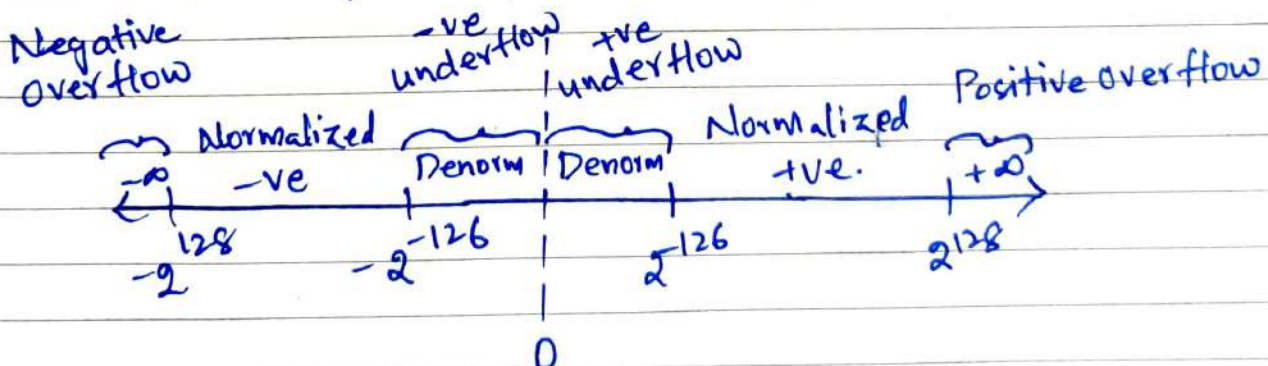 Negative overflow
-ve underflow
+ve underflow
Positive overflow
-∞
Normalized -ve
Denorm
Denorm
Normalized +ve.
+∞
-2^128
-2^-126
2^-126
2^128
0